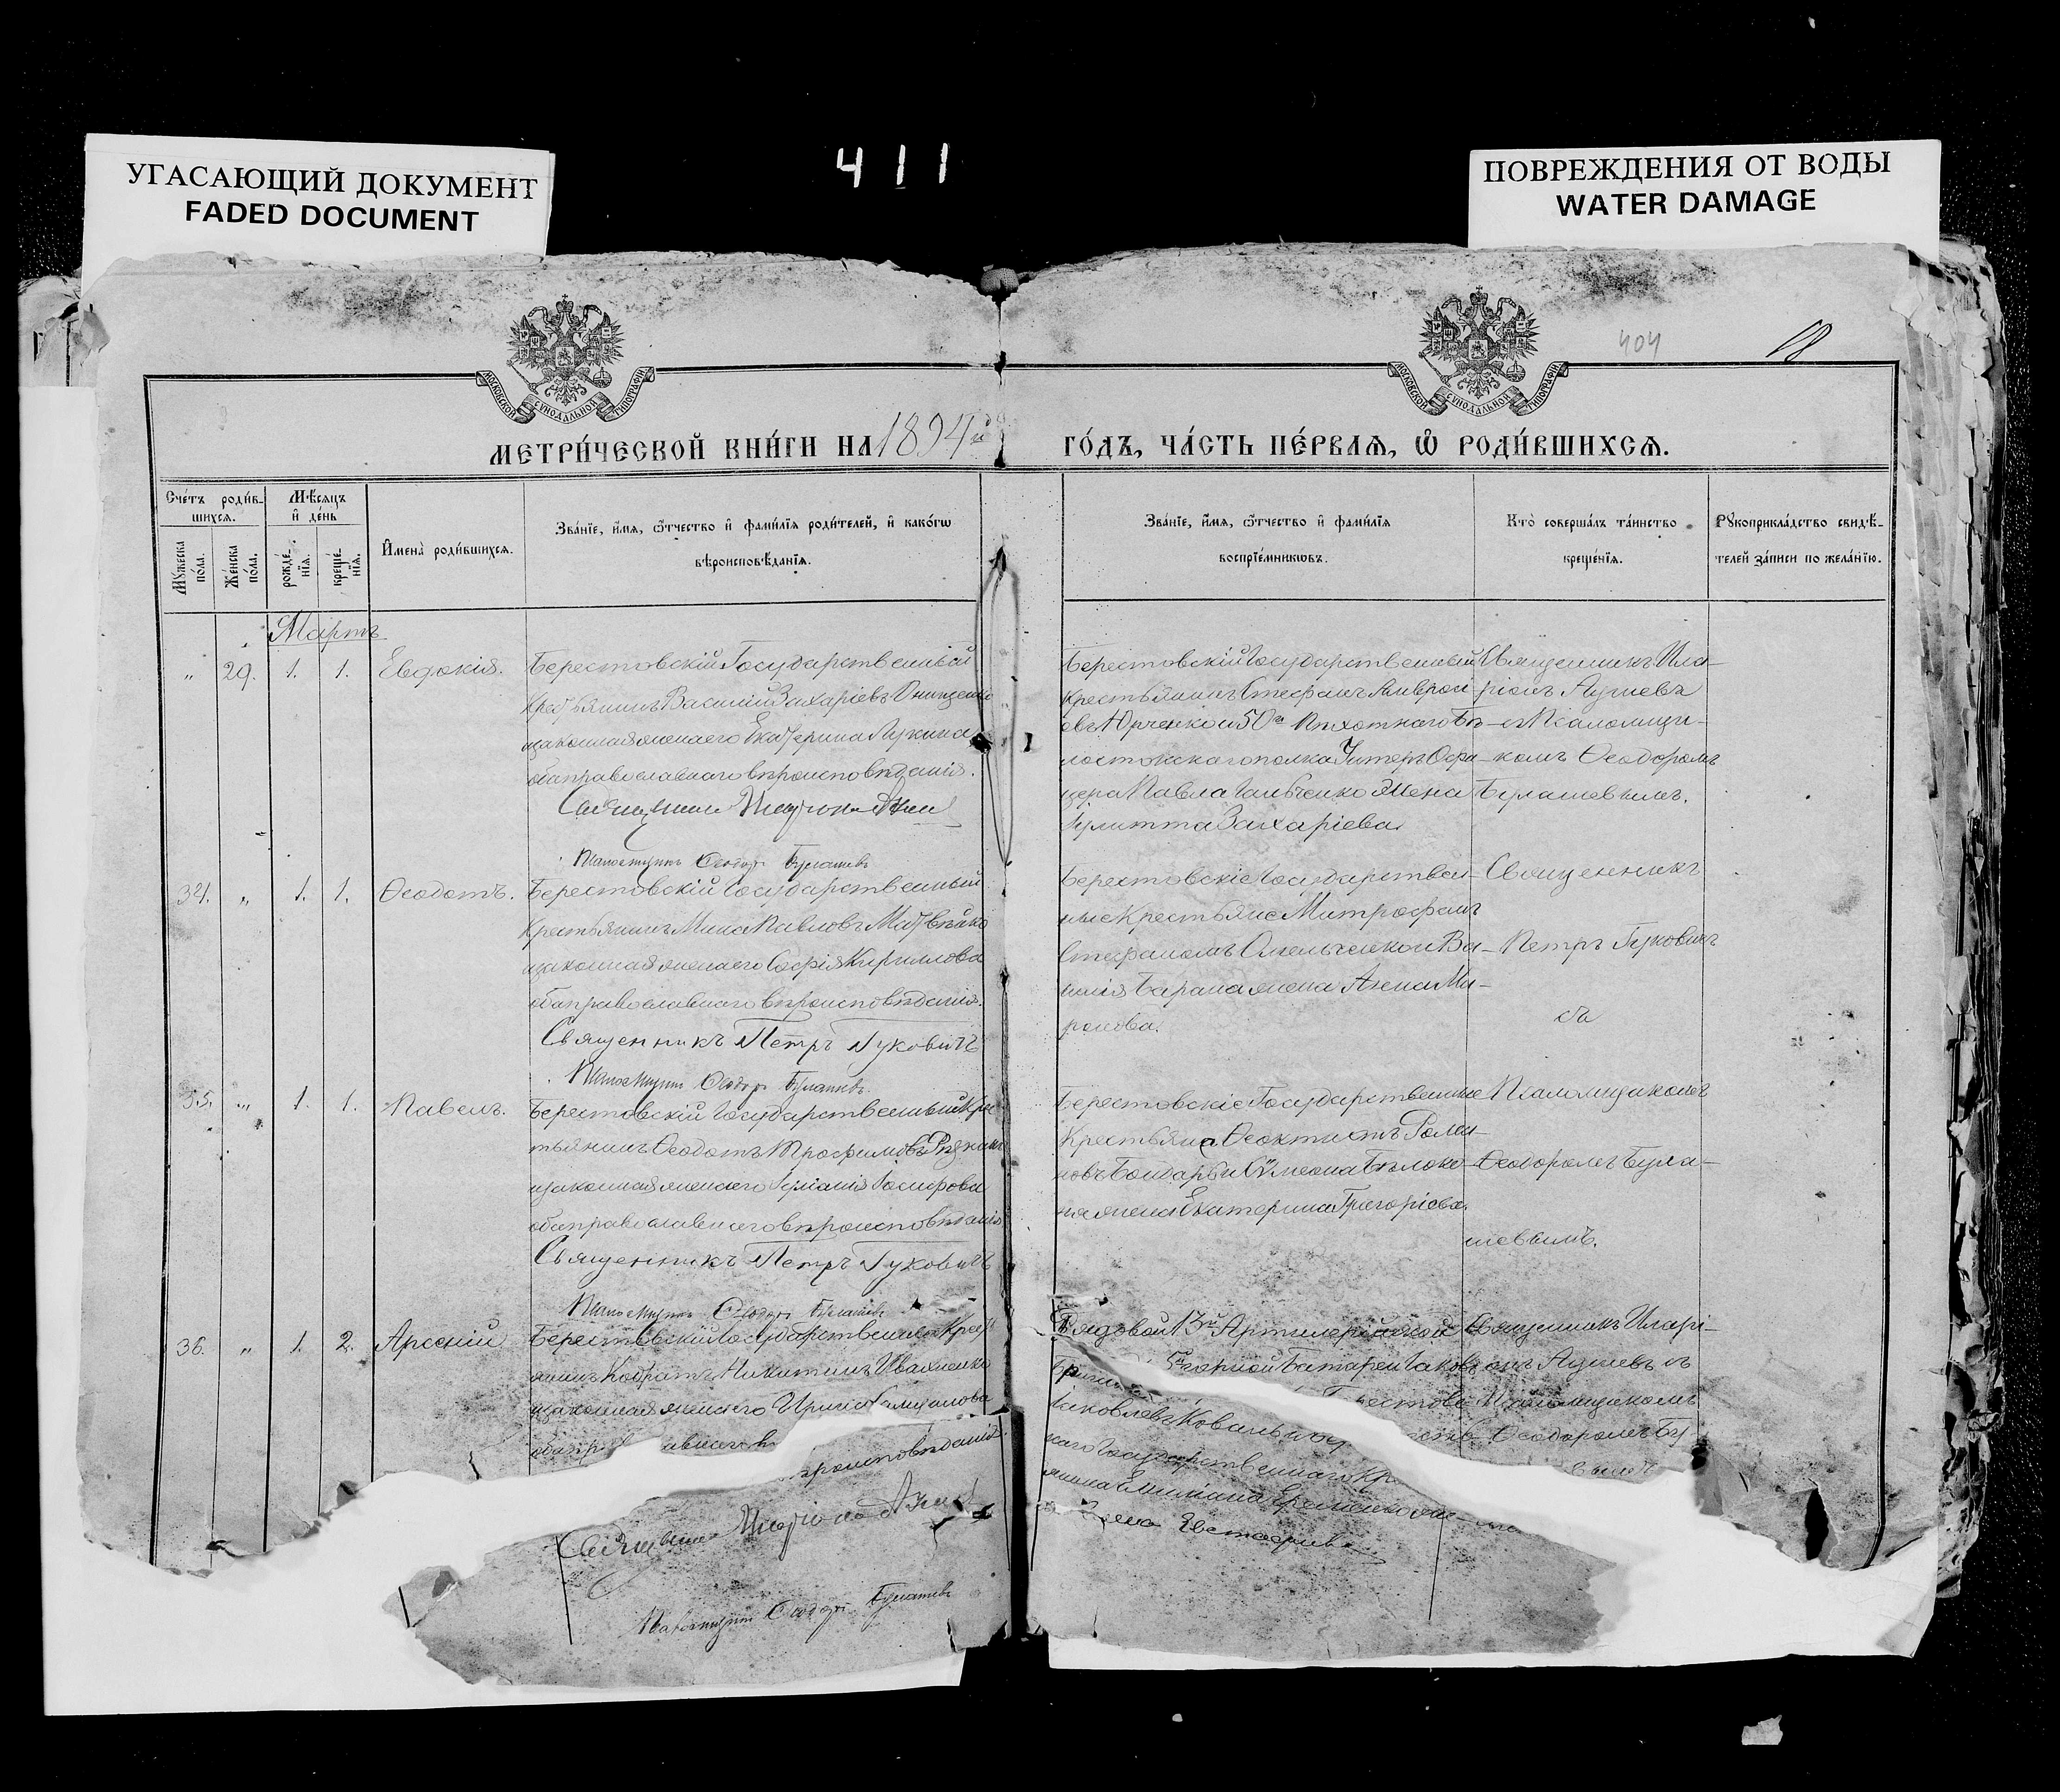 УГАСАЮЩИЙ ДОКУМЕНТ
FADED DOCUMENT
411
ПОВРЕЖДЕНИЯ ОТ ВОДЫ
WATER DAMAGE
404
18
МОСКОВСКОЙ СѴНОДАЛЬНОЙ ТИПОГРАФІИ
МОСКОВСКОЙ СѴНОДАЛЬНОЙ ТИПОГРАФІИ
МЕТРИ́ЧЕСКОЙ КНИ́ГИ НА 1894й
ГО́ДЪ, ЧА́СТЬ ПЕ́РВАѦ, Ѡ҆ РОДИ́ВШИХСѦ.
Сче́тъ роди́в-
шихсѧ.
Мѣ́сѧцъ
и҆ де́нь
Мꙋ́жеска по́ла.
Же́нска по́ла.
рожде́нїѧ.
креще́нїѧ.
И҆мена̀ роди́вшихсѧ.
Зва́нїе, и҆́мѧ, ѻ҆́тчество и҆ фами́лїѧ роди́телей, и҆ како́гѡ
вѣроисповѣ́данїѧ.
Зва́нїе, и҆́мѧ, ѻ҆́тчество и҆ фами́лїѧ
воспрїе́мникѡвъ.
Кто̀ соверша́лъ та́инство
креще́нїѧ.
Рꙋкоприкла́дство свидѣ́-
телей за́писи по жела́нїю.
Мартъ
„ 29. 1. 1. Евдокія.
Берестовскій Государственный
Крестьянинъ Василій Захаріевъ Онищенко
и законная жена его Екатерина Лукина
оба православнаго вѣроисповѣданія.
Псаломщикъ Ѳеодоръ Булашевъ
Берестовскій Государственный
Крестьянинъ Стефанъ Амвросі
евъ Юрченко и 50го Пѣхотнаго Бѣ-
лостокскаго полка Унтеръ Офи
цера Павла Ильченко жена
Іулитта Захаріева.
Священникъ Ила-
ріонъ
съ Псаломщи-
комъ Ѳеодоромъ
Булашевымъ.
34. „ 1. 1. Ѳеодотъ.
Берестовскій Государственный
Крестьянинъ Мина Павловъ Матвѣйко
и законная жена его Софія Кириллова
оба православнаго вѣроисповѣданія.
Священникъ Петръ Гуковичъ
Псаломщикъ Ѳеодоръ Булашевъ
Берестовскіе Государствен-
ные Крестьяне Митрофанъ
Стефановъ Омельченко и Ва-
силія Барана жена Анна Ми-
ронова.
Священникъ
Петръ Гуковичъ
съ
35. „ 1. 1. Павелъ.
Берестовскій Государственный Крес
тьянинъ Ѳеодотъ Трофимовъ
и законная жена его Іуліанія Іосифова
оба православнаго вѣроисповѣданія
Священникъ Петръ Гуковичъ
Псаломщикъ Ѳеодоръ Булашевъ
Берестовскіе Государственные
Крестьяне Ѳеоктистъ Рома-
новъ Бондарь и Сѵмеона Бѣлоко-
ня жена Екатерина Григоріева.
Псаломщикомъ
Ѳеодоромъ Була-
шевымъ.
36. „ 1. 2. Арсеній
Берестовскій Государственный Крест
янинъ Кодратъ Никитинъ Ивахненко
и законная жена его Ирина
вѣроисповѣданія.
Псаломщикъ Ѳеодоръ Булашевъ
Рядовой 13й Артилерійской
Батареи Іаковъ
Іаковлевъ Коваль
наго Государственнаго Кре
янина Емиліана Еременко же-
Евстафіева
Священникъ Иларі-
онъ съ
Псаломщикомъ
Ѳеодоромъ Бу